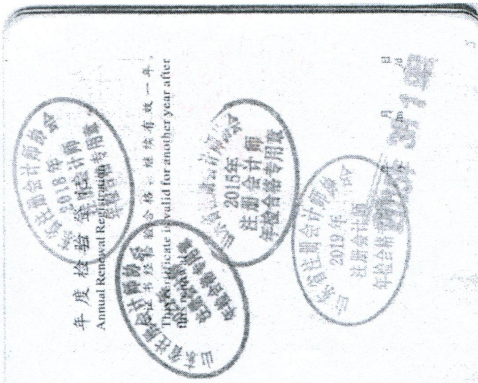 年度检验登记
Annual Renewal Registration
本证书经检验合格，继续有效一年。
This certificate is valid for another year after
this renewal.
山东省注册会计师协会
2018年
注册会计师
山东省注册会计师协会
注册会计师
年检合格专用章
山东省注册会计师协会
2015年
注册会计师
年检合格专用章
山东省注册会计师协会
2019年
注册会计师
年检合格
年 月 日
5